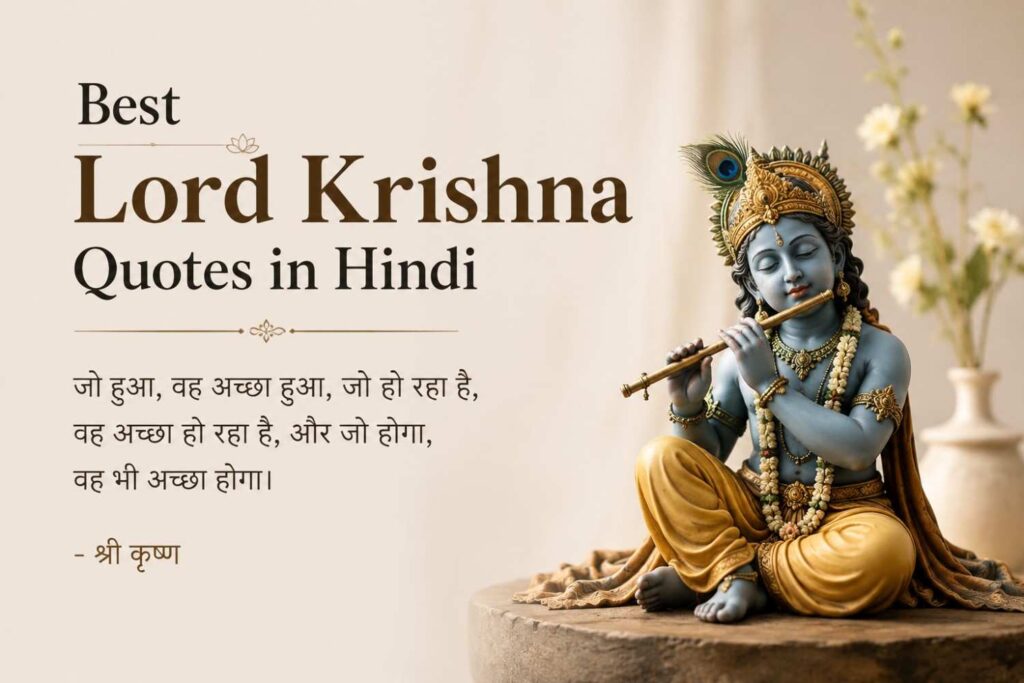 Best
Lord Krishna
Quotes in Hindi
जो हुआ, वह अच्छा हुआ, जो हो रहा है,
वह अच्छा हो रहा है, और जो होगा,
वह भी अच्छा होगा।
- श्री कृष्ण